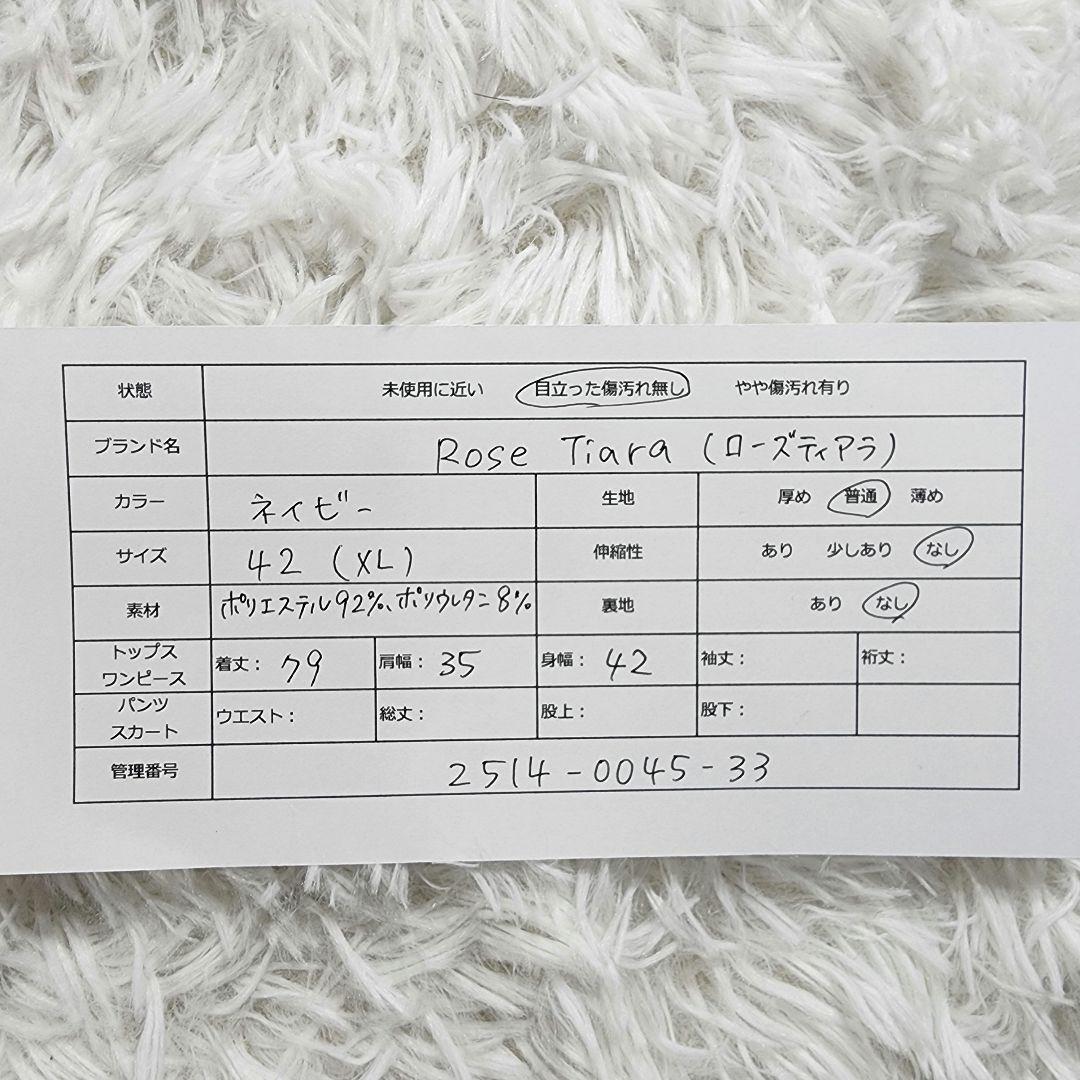 状態 未使用に近い 目立った傷汚れ無し やや傷汚れ有り
ブランド名 Rose Tiara (ローズティアラ)
カラー ネイビー 生地 厚め 普通 薄め
サイズ 42 (XL) 伸縮性 あり 少しあり なし
素材 ポリエステル92%、ポリウレタン8% 裏地 あり なし
トップス
ワンピース
着丈: 79 肩幅: 35 身幅: 42 袖丈: 裄丈:
パンツ
スカート
ウエスト: 総丈: 股上: 股下:
管理番号 2514-0045-33